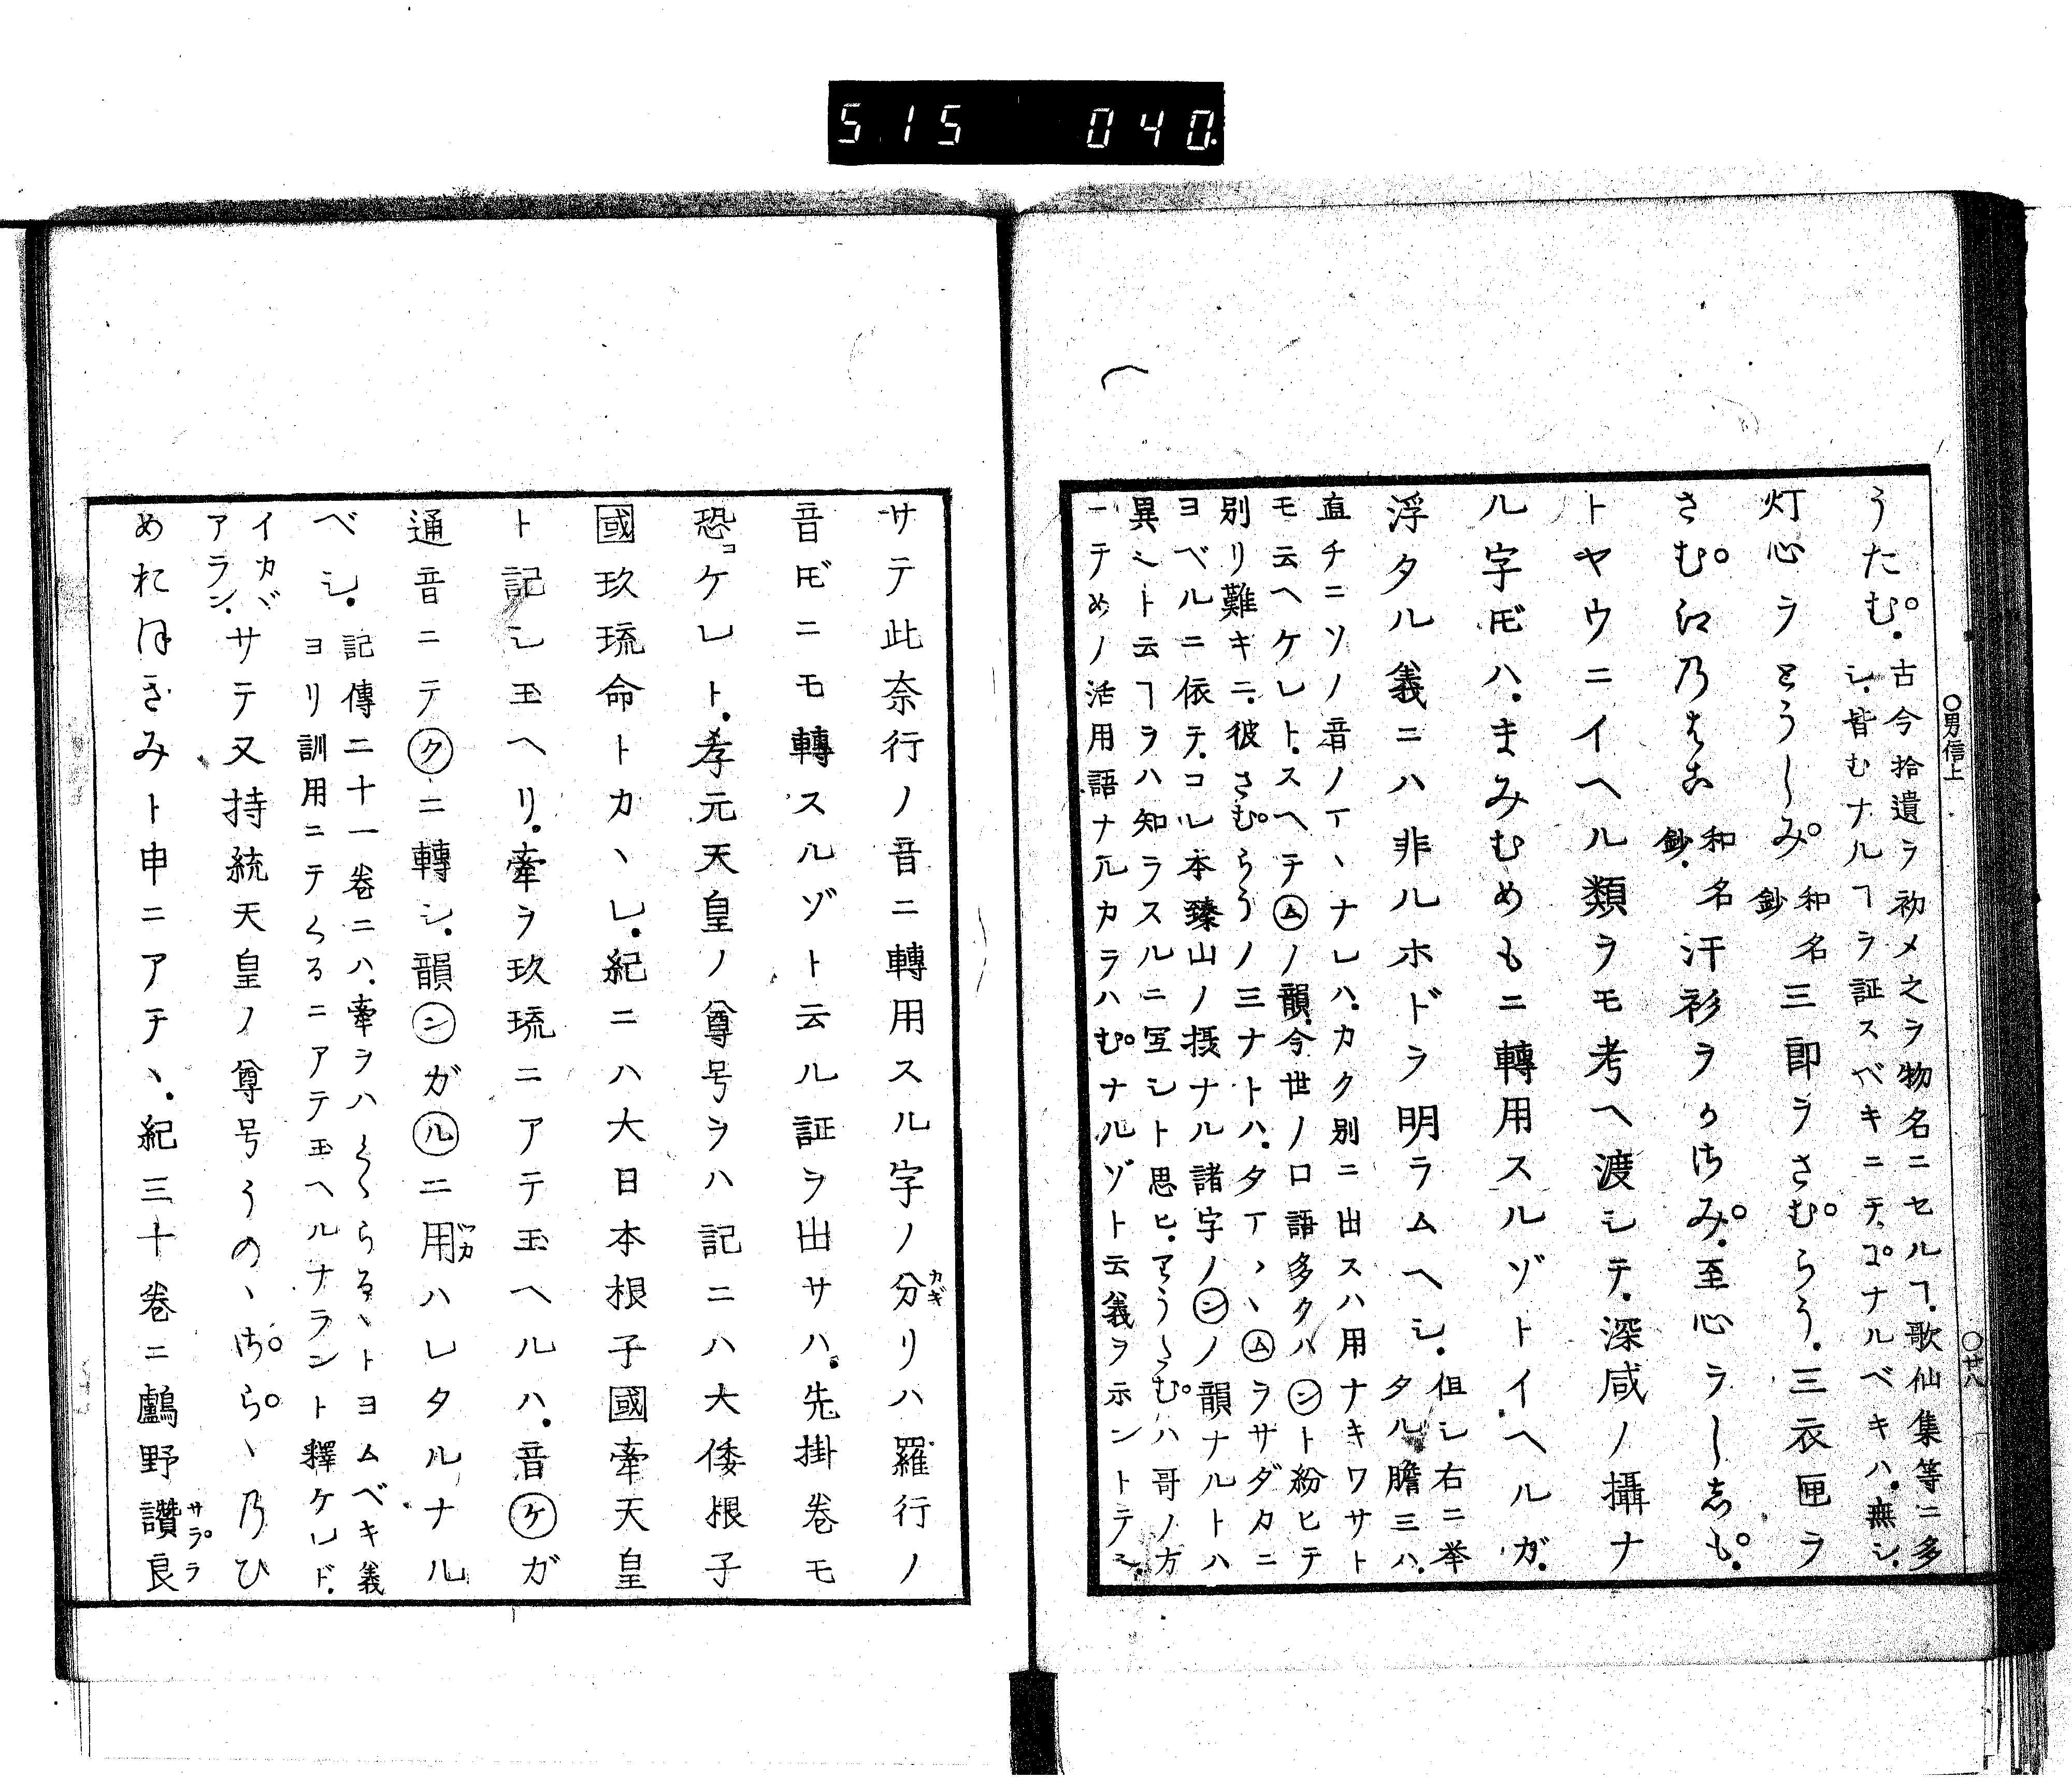 515 040
○男信上
○廿八
うたむ。
古今拾遺ヲ初メ之ヲ物名ニセルヿ、歌仙集等ニ多
シ、皆むナルヿヲ証スベキニテ、ぷナルベキハ、無シ、
灯心ヲとうしみ
和名
鈔
三郎ヲさむらう。三衣匣ヲ
さむ江乃はこ
和名
鈔、
汗衫ヲかはみ。至心ヲしゝも。
トヤウニイヘル類ヲモ考ヘ渡シテ、深咸ノ攝ナ
ル字𪜈ハ、まみむめもニ轉用スルゾトイヘルガ、
浮タル義ニハ非ルホドヲ明ラムヘシ。
但シ右ニ挙
タル膽三ハ、
直チニソノ音ノマヽナレハ、カク別ニ出スハ用ナキワサト
モ云ヘケレト、スヘテ㋰ノ韻、今世ノ口語多クハ㋜ト紛ヒテ
別リ難キニ、彼さむらうノ三ナトハ、タマヽヽ㋰ヲサダカニ
ヨベルニ依テ、コレ本臻山ノ摂ナル諸字ノンノ韻ナルトハ
異ヘト云ヿヲハ知ラスルニ宜シト思ヒ、りうたむハ哥ノ方
ーテめノ活用語ナルカラハむナルゾト云義ヲ示ントテミ
サテ此奈行ノ音ニ轉用スル字ノ分リハ羅行ノ
カギ
音𪜈ニモ轉スルゾト云ル証ヲ出サハ。先掛巻モ
恐コケレト、孝元天皇ノ尊号ヲハ記ニハ大倭根子
國玖琉命トカヽレ、紀ニハ大日本根子國牽天皇
ト記シ玉ヘリ。牽ヲ玖琉ニアテ玉ヘルハ。音㋘ガ
通音ニテ㋗ニ轉シ、韻ンガ㋸ニ用ハレタルナル
ツカ
ベシ。
記傳二十一巻ニハ、牽ヲハくくらるゝトヨムベキ義
ヨリ訓用ニテくるニアテ玉ヘルナラント釋ケレド、
イカヾ
アラン、
サテ又持統天皇ノ尊号うのゝさらゝ乃ひ
めおほきみト申ニアテヽ、紀三十巻ニ鸕野讚良
サラヽ